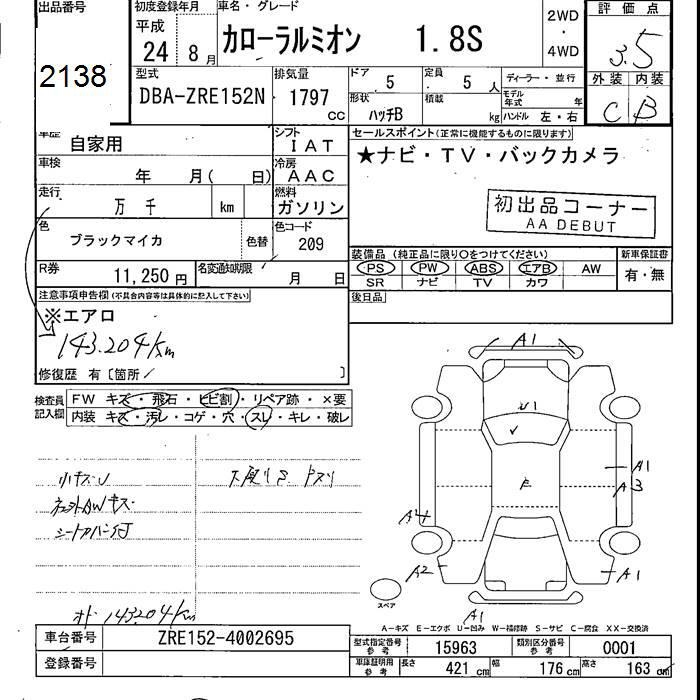 出品番号
2138
初度登録年月
平成
24 年 8月
車名・グレード
カローラルミオン 1.8S
2WD
・
4WD
評価点
3.5
外装 内装
C B
型式
DBA-ZRE152N
排気量
1797 CC
ドア 5
定員 5 人
形状 ハッチB
積載 kg
ディーラー・並行
モデル年式 年
ハンドル 左・右
車歴 自家用
シフト IAT
車検 年 月( 日)
冷房 AAC
走行 万 千 km
燃料 ガソリン
色 ブラックマイカ 色替
色コード 209
R券 11,250円
名変通知期限 月 日
セールスポイント(正常に機能するものに限ります)
★ナビ・TV・バックカメラ
初出品コーナー
AA DEBUT
装備品(純正品に限り○をつけてください)
PS PW ABS エアB AW
SR ナビ TV カワ
新車保証書
有・無
後日品
注意事項申告欄(不具合内容等は具体的に記入して下さい)
※エアロ
143.204km
修復歴 有〔箇所 〕
検査員記入欄
FW キズ・飛石・ヒビ割・リペア跡・×要
内装 キズ・汚レ・コゲ・穴・スレ・キレ・破レ
小キズU
シートカバー付
下廻りサビ
オドー 143204km
A1
U1
A1
A3
A4
A2
A1
A1
スペア
A-キズ E-エクボ U-凹み W-補修跡 S-サビ C-腐食 XX-交換済
車台番号 ZRE152-4002695
登録番号
型式指定番号 参考 15963
類別区分番号 参考 0001
車庫証明用 参考 長さ 421 cm 幅 176 cm 高さ 163 cm